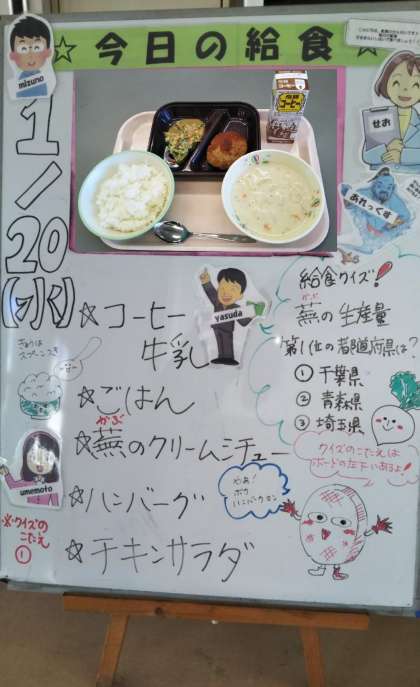 ☆今日の給食☆
mizuno
せお
あれっくす
1/20(水)
コーヒー
☆コーヒー
牛乳
yasuda
きょうは
スプーンつき
☆ごはん
かぶ
☆蕪のクリームシチュー
umemoto
☆ハンバーグ
☆チキンサラダ
給食クイズ!
かぶ
蕪の生産量
第1位の都道府県は?
① 千葉県
② 青森県
③ 埼玉県
クイズのこたえは
ボードの左下にあるよ!
やぁ!
ボク
ハンバーグマン
※クイズの
こたえ
①